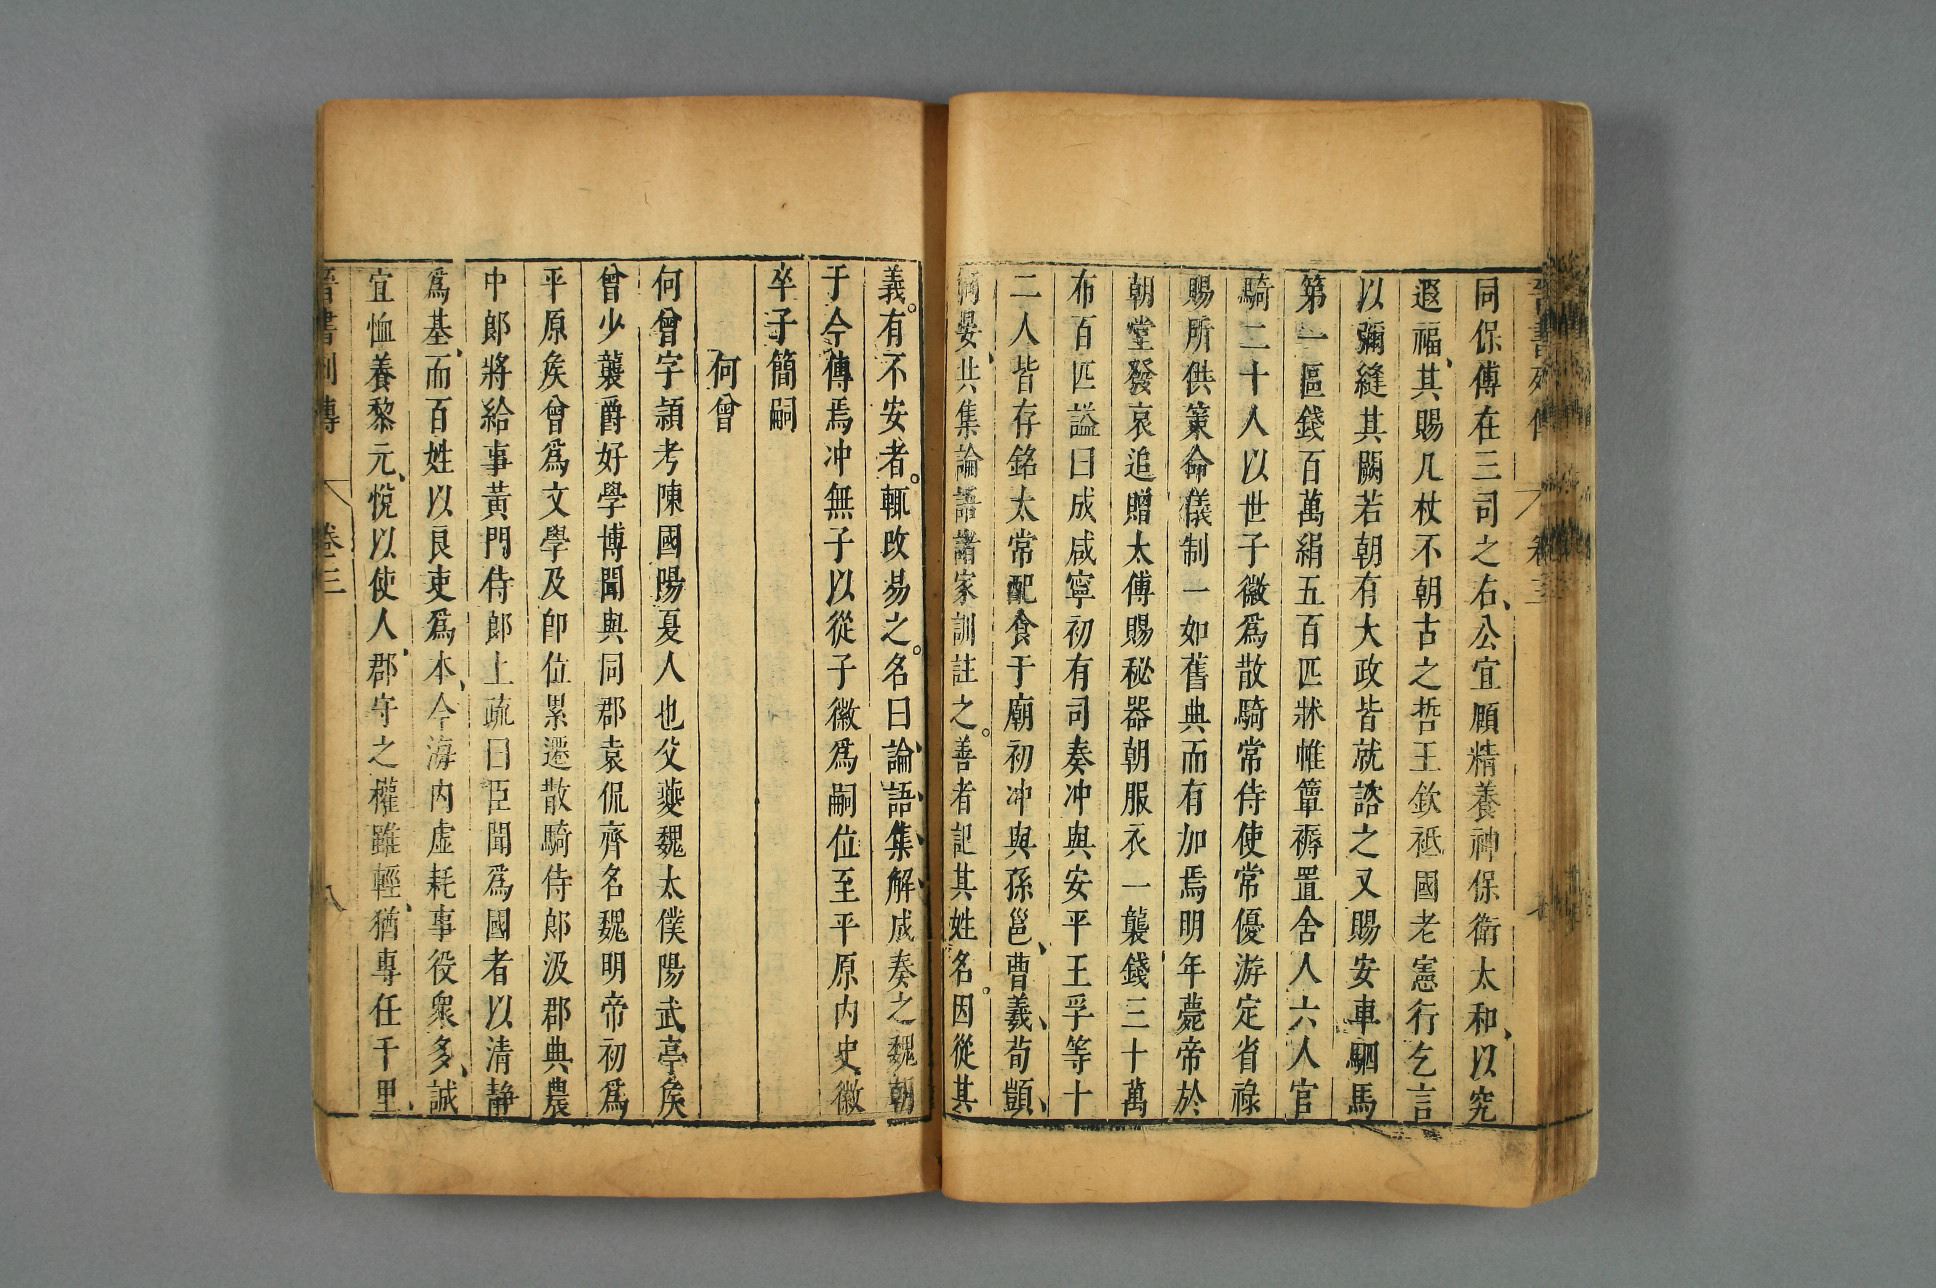 晉書列傳 卷三
同保傅在三司之右、公宜頤精養神保衛太和、以究
遐福、其賜几杖不朝古之哲王欽祗國老憲行乞言
以彌縫其闕若朝有大政皆就諮之又賜安車駟馬
第一區錢百萬絹五百匹牀帷簟褥置舍人六人官
騎二十人以世子徽爲散騎常侍使常優游定省祿
賜所供策命儀制一如舊典而有加焉明年薨帝於
朝堂發哀追贈太傅賜秘器朝服衣一襲錢三十萬
布百匹謚曰成咸寧初有司奏沖與安平王孚等十
二人皆存銘太常配食于廟初冲與孫邕、曹羲、荀顗、
何晏、共集論語諸家訓註之。善者記其姓名。因從其
義。有不安者。輒改易之。名曰、論語集解成奏之魏朝
于今傳焉冲無子以從子徽爲嗣位至平原内史徽
卒子簡嗣
何曾
何曾字頴考陳國陽夏人也父夔魏太僕陽武亭矦
曾少襲爵好學博聞與同郡袁侃齊名魏明帝初爲
平原矦曾爲文學及卽位累遷散騎侍郎汲郡典農
中郎將給事黃門侍郎上疏曰臣聞爲國者以清静
爲基、而百姓以良吏爲本、今海内虛耗事役衆多、誠
宜恤養黎元、悅以使人、郡守之權雖輕、猶專任千里、
晉書列傳 卷三 八